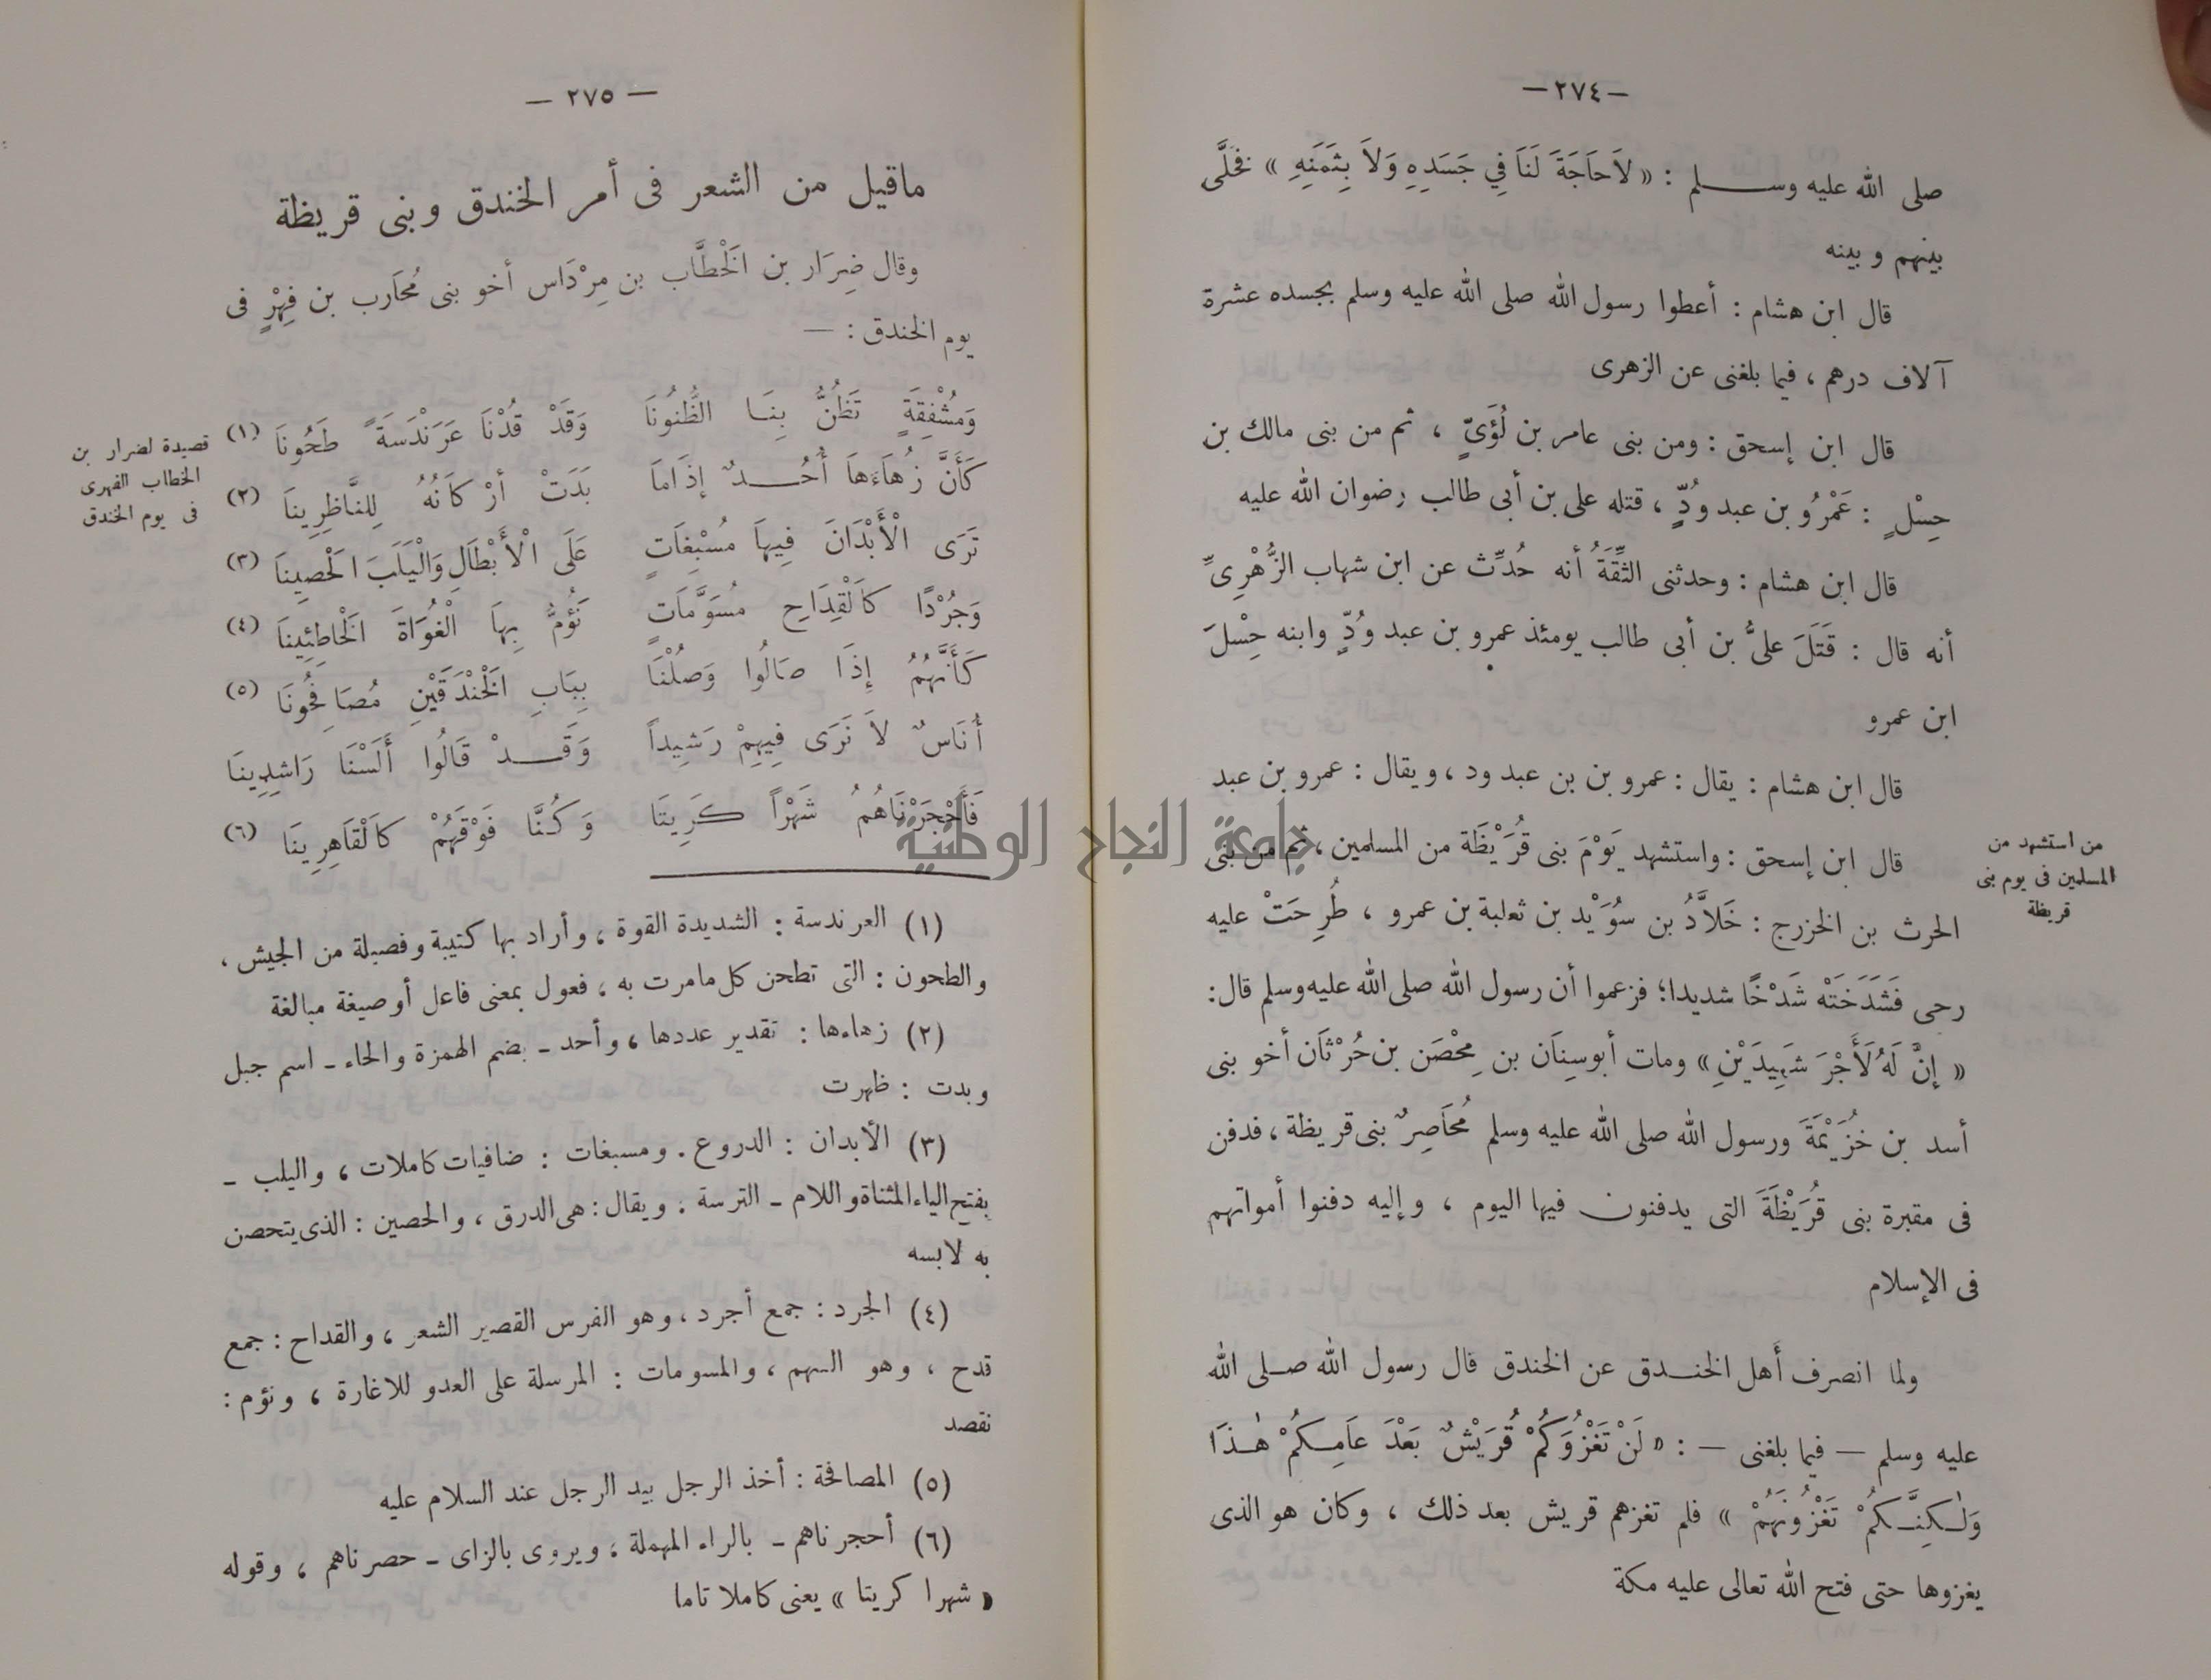 — ٢٧٤ —
صلى الله عليه وسلم : « لاَحَاجَةَ لَنَا فِي جَسَدِهِ وَلاَ بِثَمَنِهِ » فَخَلَّى
بينهم وبينه
قال ابن هشام : أعطوا رسول الله صلى الله عليه وسلم بجسده عشرة
آلاف درهم ، فيما بلغنى عن الزهرى
قال ابن إسحق : ومن بنى عامر بن لُؤَىٍّ ، ثم من بنى مالك بن
حِسْلٍ : عَمْرُو بن عبد وُدٍّ ، قتله على بن أبى طالب رضوان الله عليه
قال ابن هشام : وحدثنى الثِّقَةُ أنه حُدِّث عن ابن شهاب الزُّهْرِىِّ
أنه قال : قَتَلَ علىُّ بن أبى طالب يومئذ عمرو بن عبد وُدٍّ وابنه حِسْلَ
ابن عمرو
قال ابن هشام : يقال : عمرو بن بن عبد ود ، ويقال : عمرو بن عبد
من استشهد من
المسلمين فى يوم بنى
قريظة
قال ابن إسحق : واستشهد يَوْمَ بنى قُرَيْظَة من المسلمين ، ثم من بنى
الحرث بن الخزرج : خَلاَّدُ بن سُوَيْد بن ثعلبة بن عمرو ، طُرِحَتْ عليه
رحى فَشَدَخَتْه شَدْخًا شديدا؛ فزعموا أن رسول الله صلى الله عليه وسلم قال:
« إنَّ لَهُ لَأَجْرَ شَهِيدَيْنِ » ومات أبو سِنَان بن مِحْصَن بن حُرْثَان أخو بنى
أسد بن خُزَيْمَةَ ورسول الله صلى الله عليه وسلم مُحَاصِرٌ بنى قريظة ، فدفن
فى مقبرة بنى قُرَيْظَةَ التى يدفنون فيها اليوم ، وإليه دفنوا أمواتهم
فى الإسلام
ولما انصرف أهل الخندق عن الخندق قال رسول الله صلى الله
عليه وسلم — فيما بلغنى — : « لَنْ تَغْزُوَكُمْ قُرَيْشٌ بَعْدَ عَامِكُمْ هٰذَا
وَلٰكِنَّكُمْ تَغْزُونَهُمْ » فلم تغزهم قريش بعد ذلك ، وكان هو الذى
يغزوها حتى فتح الله تعالى عليه مكة
جامعة النجاح الوطنية
— ٢٧٥ —
ماقيل من الشعر فى أمر الخندق وبنى قريظة
وقال ضِرَار بن الْخَطَّاب بن مِرْدَاس أخو بنى مُحَارب بن فِهْرٍ فى
يوم الخندق : —
قصيدة لضرار بن
الخطاب الفهرى
فى يوم الخندق
وَمُشْفِقَةٍ تَظُنُّ بِنَا الظُّنُونَا وَقَدْ قُدْنَا عَرَنْدَسَةً طَحُونَا (١)
كَأَنَّ زُهَاءَهَا أُحُدٌ إذَامَا بَدَتْ أرْكَانُهُ لِلنَّاظِرِينَا (٢)
تَرَى الْأَبْدَانَ فِيهَا مُسْبِغَاتٍ عَلَى الْأَبْطَالِ وَالْيَلَبَ الْحَصِينَا (٣)
وَجُرْدًا كَالْقِدَاحِ مُسَوَّمَاتٍ نَؤُمُّ بِهَا الْغُوَاةَ الْخَاطِئِينَا (٤)
كَأَنَّهُمُ إِذَا صَالُوا وَصُلْنَا بِبَابِ الْخَنْدَقَيْنِ مُصَافِحُونَا (٥)
أُنَاسٌ لاَ نَرَى فِيهِمْ رَشِيداً وَقَدْ قَالُوا أَلَسْنَا رَاشِدِينَا
فَأَحْجَرْنَاهُمُ شَهْرًا كَرِيتَا وَكُنَّا فَوْقَهُمْ كَالْقَاهِرِينَا (٦)
(١) العرندسة : الشديدة القوة ، وأراد بها كتيبة وفصيلة من الجيش ،
والطحون : التى تطحن كل مامرت به ، فعول بمعنى فاعل أو صيغة مبالغة
(٢) زهاءها : تقدير عددها ، وأحد ـ بضم الهمزة والحاء ـ اسم جبل
وبدت : ظهرت
(٣) الأبدان : الدروع . ومسبغات : ضافيات كاملات ، واليلب ـ
بفتح الياء المثناة واللام ـ الترسة . ويقال : هى الدرق ، والحصين : الذى يتحصن
به لابسه
(٤) الجرد : جمع أجرد ، وهو الفرس القصير الشعر ، والقداح : جمع
قدح ، وهو السهم ، والمسومات : المرسلة على العدو للاغارة ، ونؤم :
نقصد
(٥) المصافحة : أخذ الرجل بيد الرجل عند السلام عليه
(٦) أحجرناهم ـ بالراء المهملة ، ويروى بالزاى ـ حصرناهم ، وقوله
« شهرا كريتا » يعنى كاملا تاما